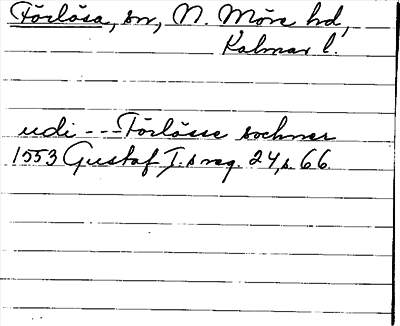 Förlösa, sn, N. Möre hd,
Kalmar l.
udi --- Förlösse sochner
1553 Gustaf I:s reg. 24, s. 66.